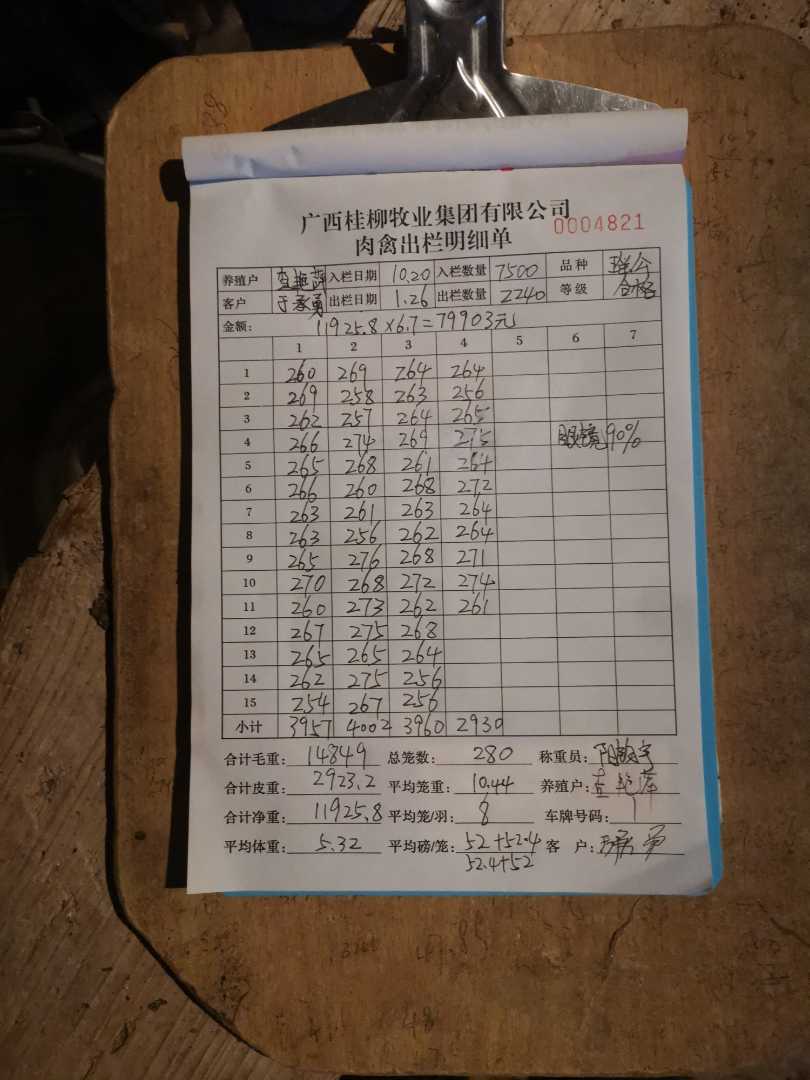 广西桂柳牧业集团有限公司
肉禽出栏明细单 0004821
养殖户 入栏日期 10.20 入栏数量 7500 品种
客户 于承勇 出栏日期 1.26 出栏数量 2240 等级 合格
金额: 11925.8×6.7=79903元
1 2 3 4 5 6 7
1 260 269 264 264
2 269 258 263 256
3 262 257 264 265
4 266 274 269 275 眼镜90%
5 265 268 261 264
6 266 260 268 272
7 263 261 263 264
8 263 256 262 264
9 265 276 268 271
10 270 268 272 274
11 260 273 262 261
12 267 275 268
13 265 265 264
14 262 275 256
15 254 267 256
小计 3957 4002 3960 2930
合计毛重: 14849 总笼数: 280 称重员:
合计皮重: 2923.2 平均笼重: 10.44 养殖户:
合计净重: 11925.8 平均笼/羽: 8 车牌号码:
平均体重: 5.32 平均磅/笼: 52+52.4 客 户:
52.4+52